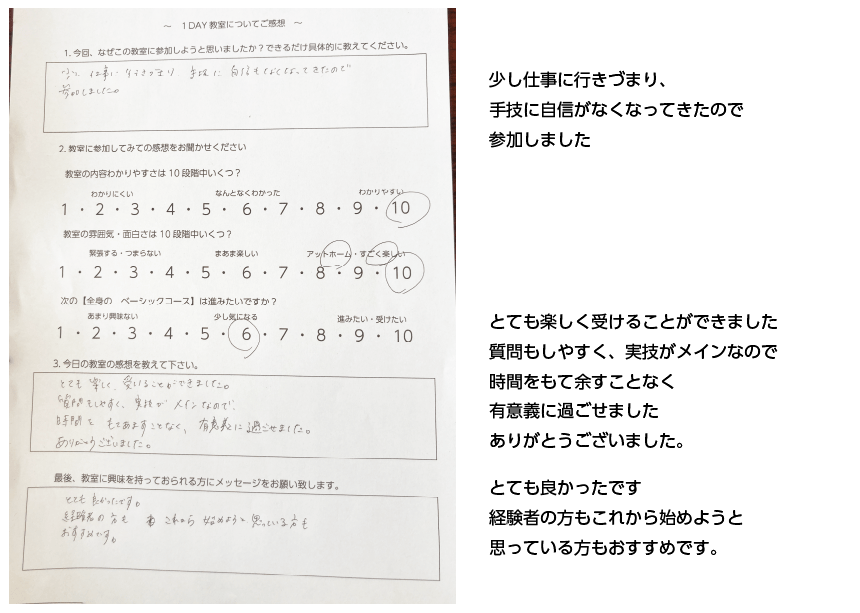 ～ 1DAY教室についてご感想 ～
1.今回、なぜこの教室に参加しようと思いましたか？できるだけ具体的に教えてください。
少し 仕事に 行きづまり 手技に 自信もなくなってきたので
参加しました。
2.教室に参加してみての感想をお聞かせください
教室の内容わかりやすさは10段階中いくつ？
わかりにくい なんとなくわかった わかりやすい
1・2・3・4・5・6・7・8・9・10
教室の雰囲気・面白さは10段階中いくつ？
緊張する・つまらない まあま楽しい アットホーム・すごく楽しい
1・2・3・4・5・6・7・8・9・10
次の【全身の ベーシックコース】は進みたいですか？
あまり興味ない 少し気になる 進みたい・受けたい
1・2・3・4・5・6・7・8・9・10
3.今日の教室の感想を教えて下さい。
とても 楽しく 受けることができました。
質問もしやすく、実技が メインなので、
時間を もてあますことなく、有意義に過ごせました。
ありがとうございました。
最後、教室に興味を持っておられる方にメッセージをお願い致します。
とても 良かったです。
経験者の方も これから 始めようと 思っている方も
おすすめです。
少し仕事に行きづまり、
手技に自信がなくなってきたので
参加しました
とても楽しく受けることができました
質問もしやすく、実技がメインなので
時間をもて余すことなく
有意義に過ごせました
ありがとうございました。
とても良かったです
経験者の方もこれから始めようと
思っている方もおすすめです。